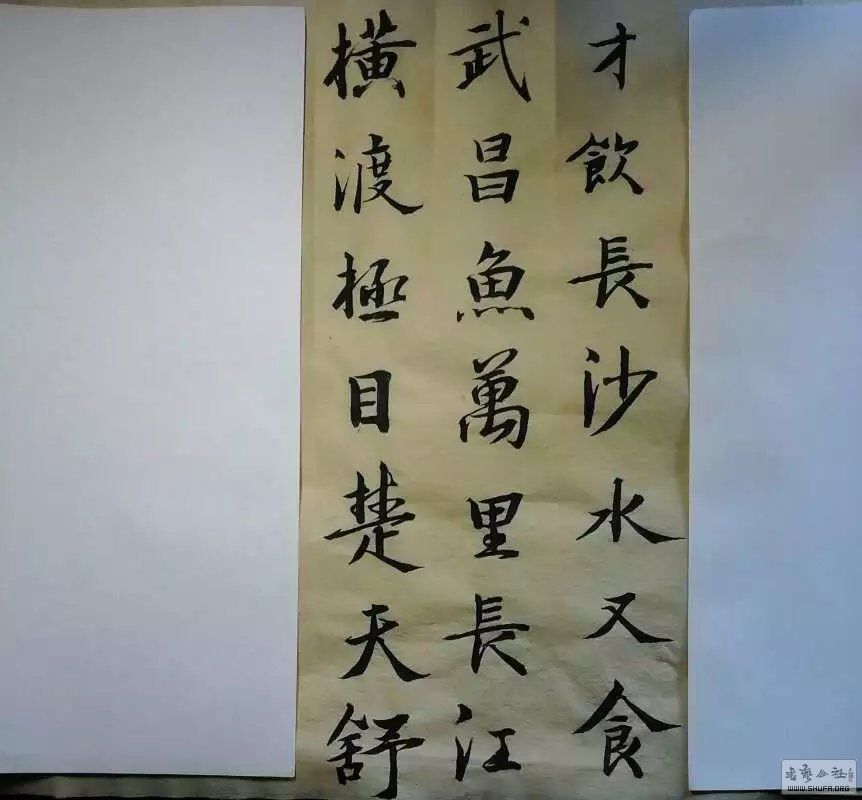 才飲長沙水又食
武昌魚萬里長江
橫渡極目楚天舒
书艺公社
WWW.SHUFA.ORG